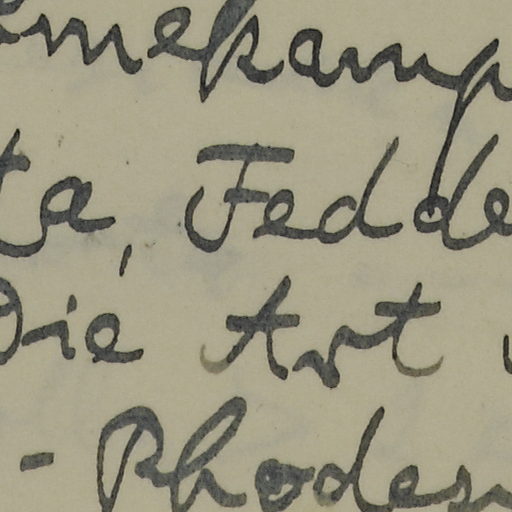 mekamp
ta, Fedde
Die Art
- Rhodes